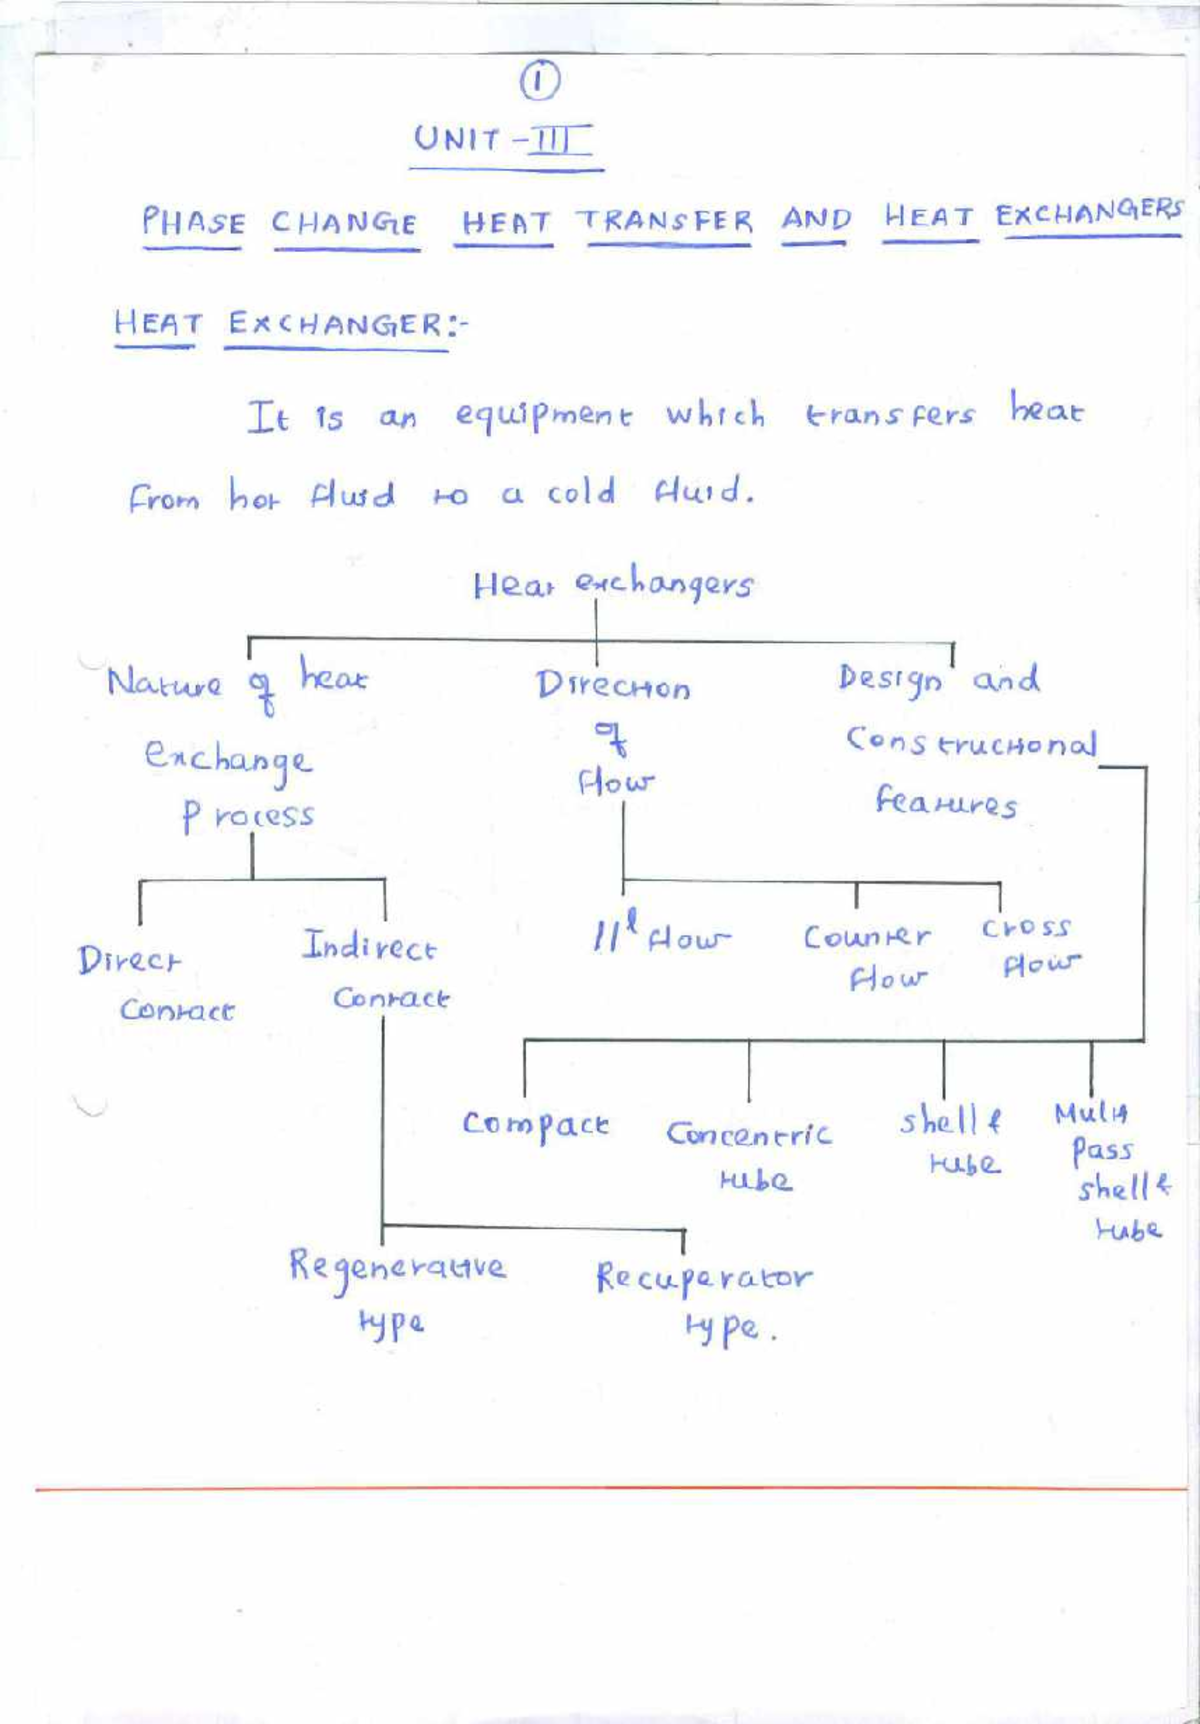 1
UNIT - III
PHASE CHANGE HEAT TRANSFER AND HEAT EXCHANGERS
HEAT EXCHANGER:-
It is an equipment which transfers heat
from hot fluid to a cold fluid.
Heat exchangers
Nature of heat
exchange
Process
Direction
of
flow
Design and
Constructional
features
Direct
Contact
Indirect
Contact
11l flow
Counter
flow
Cross
flow
Compact
Concentric
tube
Shell &
tube
Multi
Pass
shell &
tube
Regenerative
type
Recuperator
type.